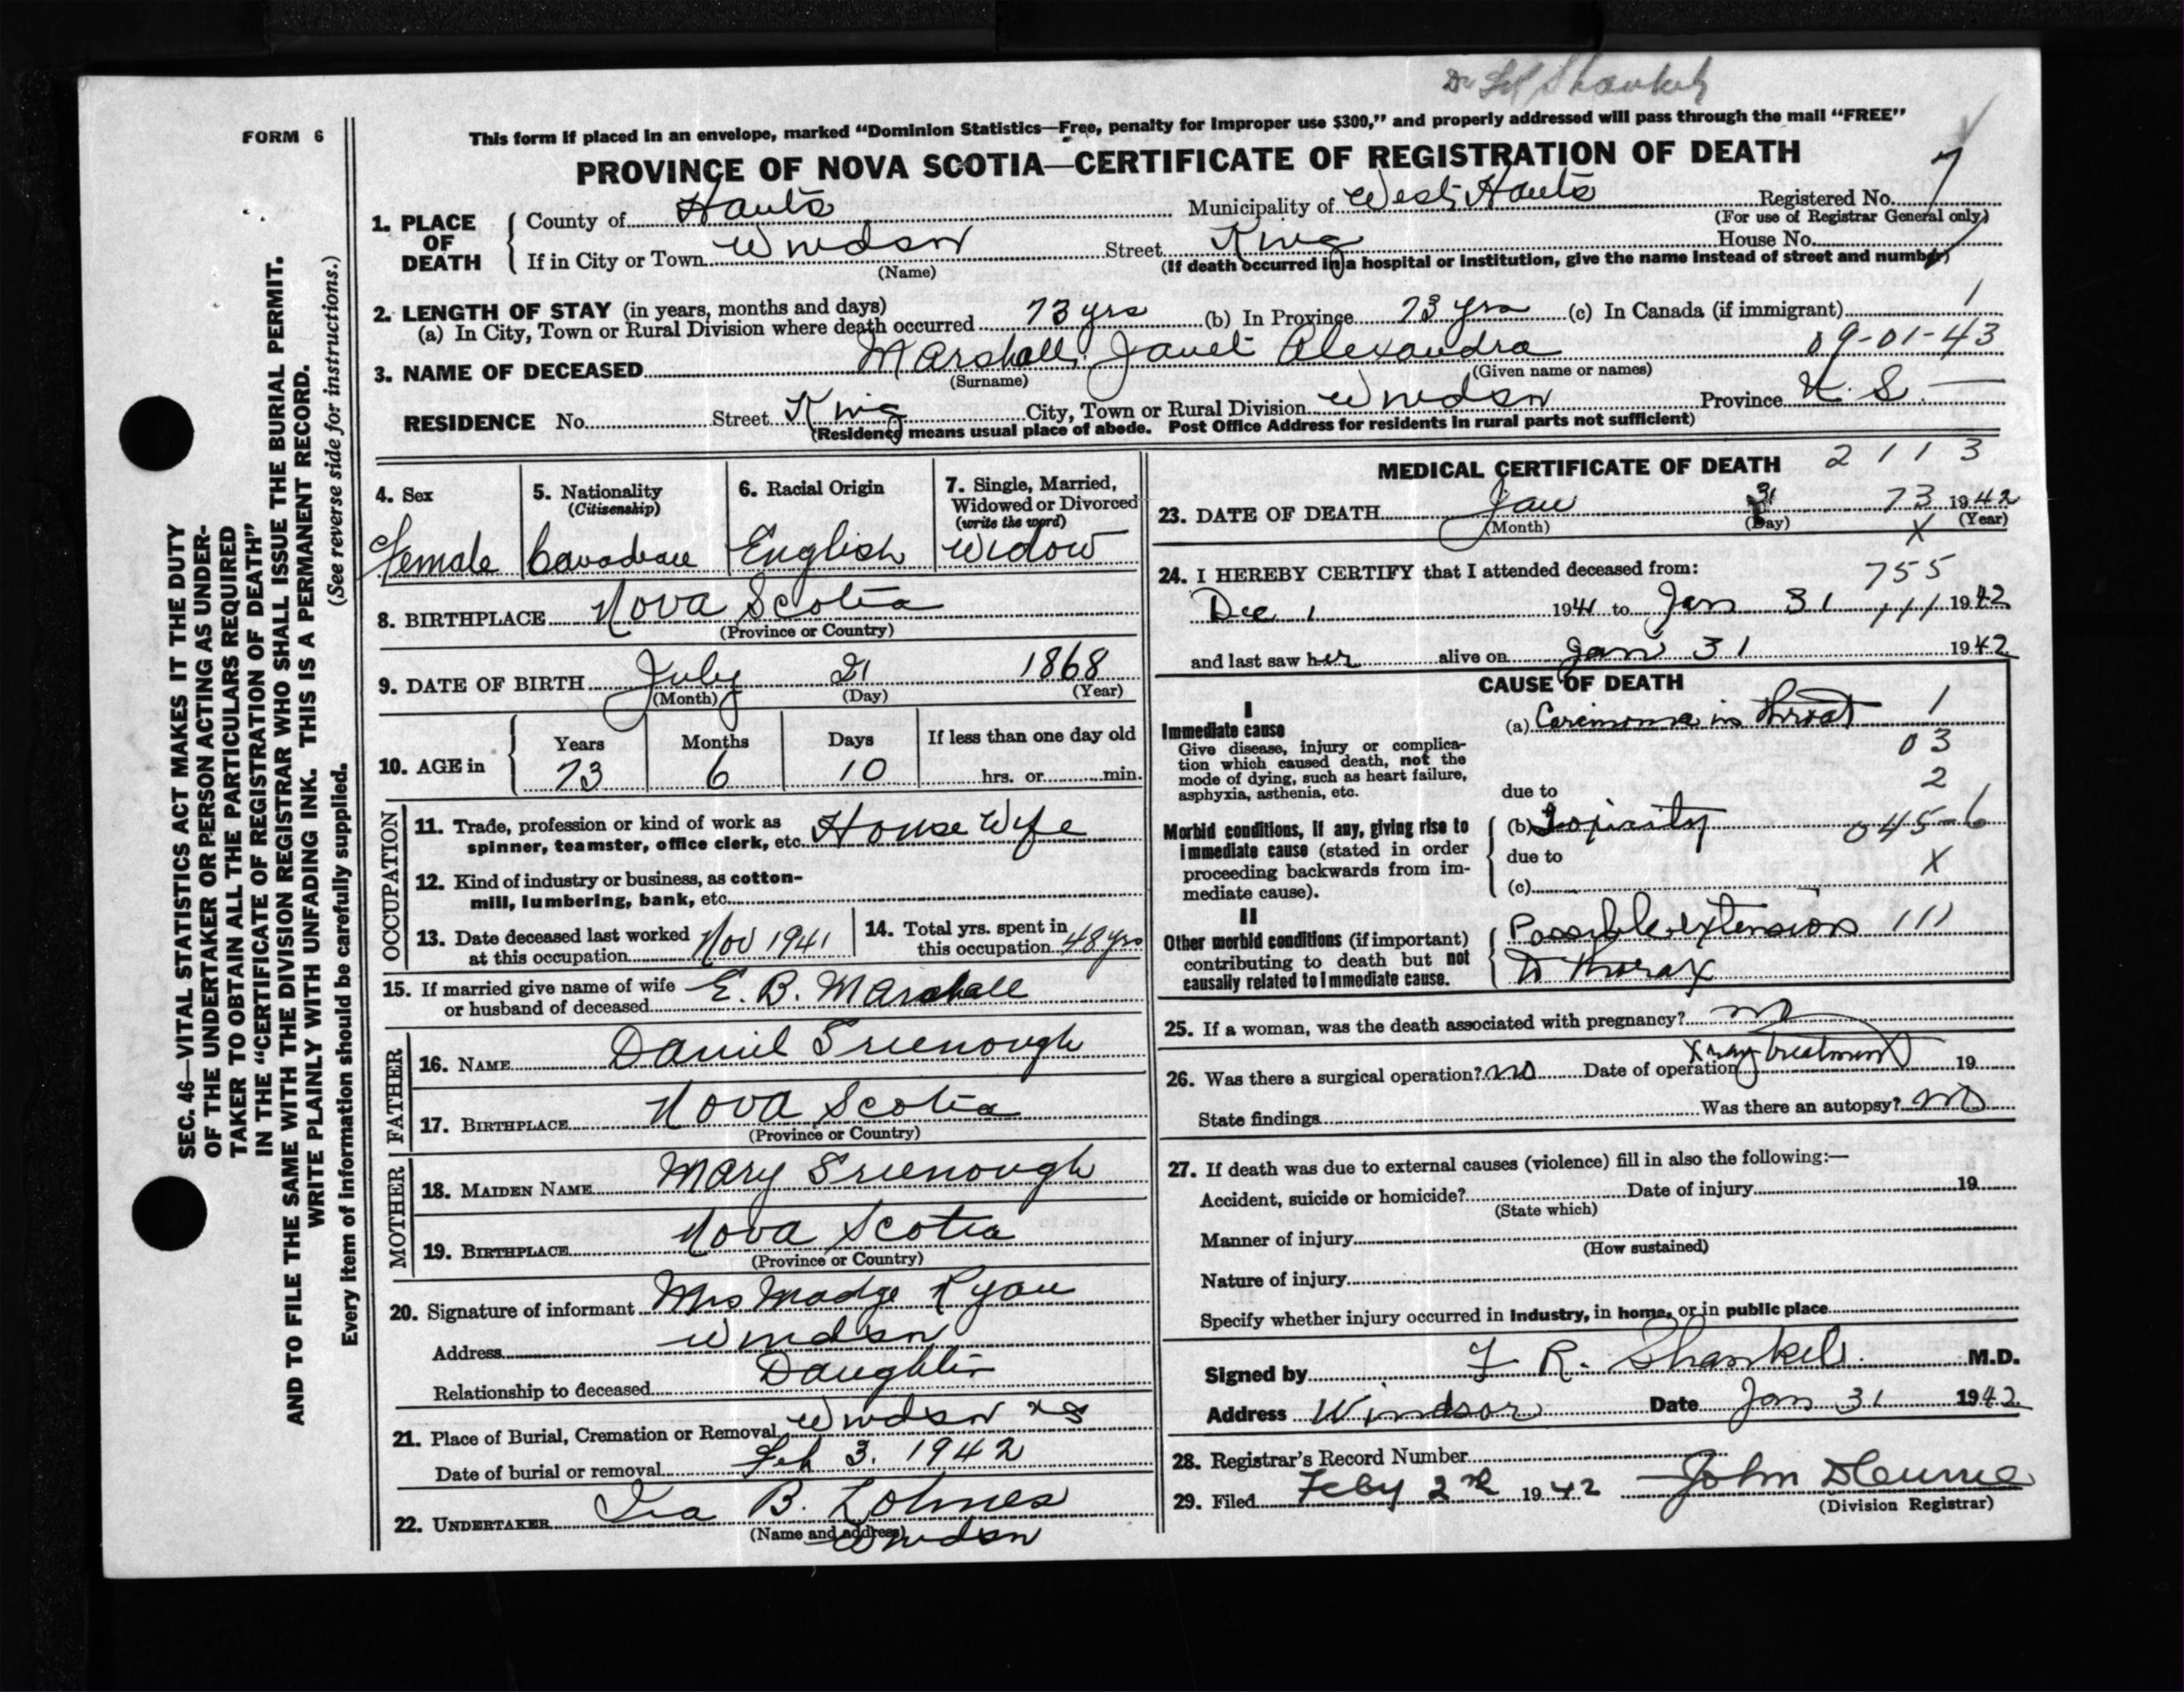 Dr Shankel
FORM 6
This form if placed in an envelope, marked “Dominion Statistics—Free, penalty for improper use $300,” and properly addressed will pass through the mail “FREE”
PROVINCE OF NOVA SCOTIA—CERTIFICATE OF REGISTRATION OF DEATH
1. PLACE OF DEATH
County of Hants Municipality of West Hants Registered No. 7
(For use of Registrar General only)
If in City or Town Windsor Street King House No.
(Name) (If death occurred in a hospital or institution, give the name instead of street and number)
2. LENGTH OF STAY (in years, months and days) 1
(a) In City, Town or Rural Division where death occurred 73 yrs (b) In Province 73 yrs (c) In Canada (if immigrant)
3. NAME OF DECEASED Marshall, Janet Alexandra 09-01-43
(Surname) (Given name or names)
RESIDENCE No. Street King City, Town or Rural Division Windsor Province N. S.
(Residence means usual place of abode. Post Office Address for residents in rural parts not sufficient)
SEC. 46—VITAL STATISTICS ACT MAKES IT THE DUTY
OF THE UNDERTAKER OR PERSON ACTING AS UNDER-
TAKER TO OBTAIN ALL THE PARTICULARS REQUIRED
IN THE “CERTIFICATE OF REGISTRATION OF DEATH”
AND TO FILE THE SAME WITH THE DIVISION REGISTRAR WHO SHALL ISSUE THE BURIAL PERMIT.
WRITE PLAINLY WITH UNFADING INK. THIS IS A PERMANENT RECORD.
Every item of information should be carefully supplied. (See reverse side for instructions.)
4. Sex
Female
5. Nationality
(Citizenship)
Canadian
6. Racial Origin
English
7. Single, Married,
Widowed or Divorced
(write the word)
Widow
8. BIRTHPLACE Nova Scotia
(Province or Country)
9. DATE OF BIRTH July 21 1868
(Month) (Day) (Year)
10. AGE in Years Months Days If less than one day old
73 6 10 hrs. or min.
OCCUPATION
11. Trade, profession or kind of work as
spinner, teamster, office clerk, etc. House Wife
12. Kind of industry or business, as cotton-
mill, lumbering, bank, etc.
13. Date deceased last worked
at this occupation Nov 1941
14. Total yrs. spent in
this occupation 48 yrs
15. If married give name of wife
or husband of deceased E. B. Marshall
FATHER
16. NAME Daniel Greenough
17. BIRTHPLACE Nova Scotia
(Province or Country)
MOTHER
18. MAIDEN NAME Mary Greenough
19. BIRTHPLACE Nova Scotia
(Province or Country)
20. Signature of informant Mrs Madge Ryan
Address Windsor
Relationship to deceased Daughter
21. Place of Burial, Cremation or Removal Windsor NS
Date of burial or removal Feb 3. 1942
22. UNDERTAKER Ira B. Lohnes
(Name and address) Windsor
MEDICAL CERTIFICATE OF DEATH 2113
23. DATE OF DEATH Jan 31 73 1942
(Month) (Day) X (Year)
24. I HEREBY CERTIFY that I attended deceased from: 755
Dec 1 1941 to Jan 31 111 1942
and last saw her alive on Jan 31 1942
CAUSE OF DEATH
I
Immediate cause
Give disease, injury or complica-
tion which caused death, not the
mode of dying, such as heart failure,
asphyxia, asthenia, etc.
(a) Carcinoma in throat 1
03
2
due to
Morbid conditions, if any, giving rise to
immediate cause (stated in order
proceeding backwards from im-
mediate cause).
(b) Toxicity 045-6
due to X
(c)
II
Other morbid conditions (if important)
contributing to death but not
causally related to immediate cause.
Possible extension 111
to thorax
25. If a woman, was the death associated with pregnancy? no
26. Was there a surgical operation? no Date of operation X ray treatment 19
State findings Was there an autopsy? no
27. If death was due to external causes (violence) fill in also the following:—
Accident, suicide or homicide? Date of injury 19
(State which)
Manner of injury
(How sustained)
Nature of injury
Specify whether injury occurred in industry, in home, or in public place
Signed by F. R. Shankel M.D.
Address Windsor Date Jan 31 1942
28. Registrar’s Record Number
29. Filed Feby 2nd 1942 John
(Division Registrar)